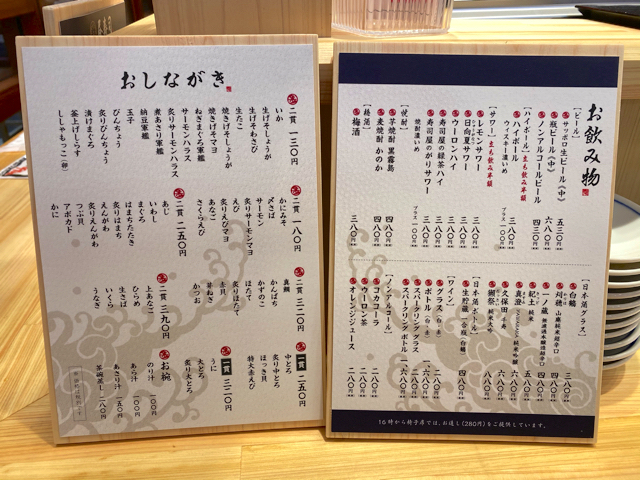 おしながき
二貫 一三〇円
いか
生げそしょうが
生げそわさび
生たこ
焼きげそしょうが
焼きげそマヨ
ねぎまぐろ軍艦
サーモンハラス
炙りサーモンハラス
煮あさり軍艦
納豆軍艦
玉子
びんちょう
炙りびんちょう
漬けまぐろ
釜上げしらす
ししゃもっこ（卵）
二貫 一八〇円
かにみそ
〆さば
サーモン
炙りサーモンマヨ
えび
炙りえびマヨ
あなご
さくらえび
二貫 二五〇円
あじ
いわし
まぐろ
はまちたたき
炙りはまち
えんがわ
炙りえんがわ
つぶ貝
アボカド
かに
二貫 三二〇円
真鯛
かんぱち
かずのこ
ほたて
炙りほたて
赤貝
芽ねぎ
かつお
二貫 三九〇円
上あなご
ひらめ
生さば
いくら
うなぎ
一貫 二五〇円
中とろ
炙り中とろ
ほっき貝
特大赤えび
一貫 三一〇円
うに
大とろ
炙り大とろ
お椀
のり汁 一〇〇円
あら汁 一〇〇円
あさり汁 一五〇円
茶碗蒸し 二八〇円
お飲み物
［ビール］
サッポロ生ビール（中） 五三〇円
瓶ビール（中） 六八〇円
ノンアルコールビール 四三〇円
［ハイボール］立ち飲み半額
ハイボール 三八〇円
ウイスキー濃いめ プラス一〇〇円
［サワー］立ち飲み半額
レモンサワー 三八〇円
日向夏サワー 三八〇円
ウーロンハイ 三八〇円
寿司屋の緑茶ハイ 三八〇円
寿司屋のがりサワー 三八〇円
焼酎濃いめ プラス一〇〇円
［焼酎］
芋焼酎 黒霧島 四八〇円
麦焼酎 かのか 四八〇円
［梅酒］
梅酒 三八〇円
［日本酒グラス］
白鶴 三八〇円
刈穂 山廃純米超辛口
一ノ蔵 無濾過本醸造超辛口
紀土 純米
真澄
久保田 千寿
獺祭 純米大吟
［日本酒ボトル］
生貯蔵 小合瓶 白鶴
［ワイン］
グラス（白・赤）
ボトル（白・赤）
スパークリング グラス
スパークリング ボトル
［ノンアルコール］
コカコーラ 二八〇円
ウーロン茶 二八〇円
オレンジジュース 二八〇円
16時から椅子席では、お通し（280円）をご提供しています。